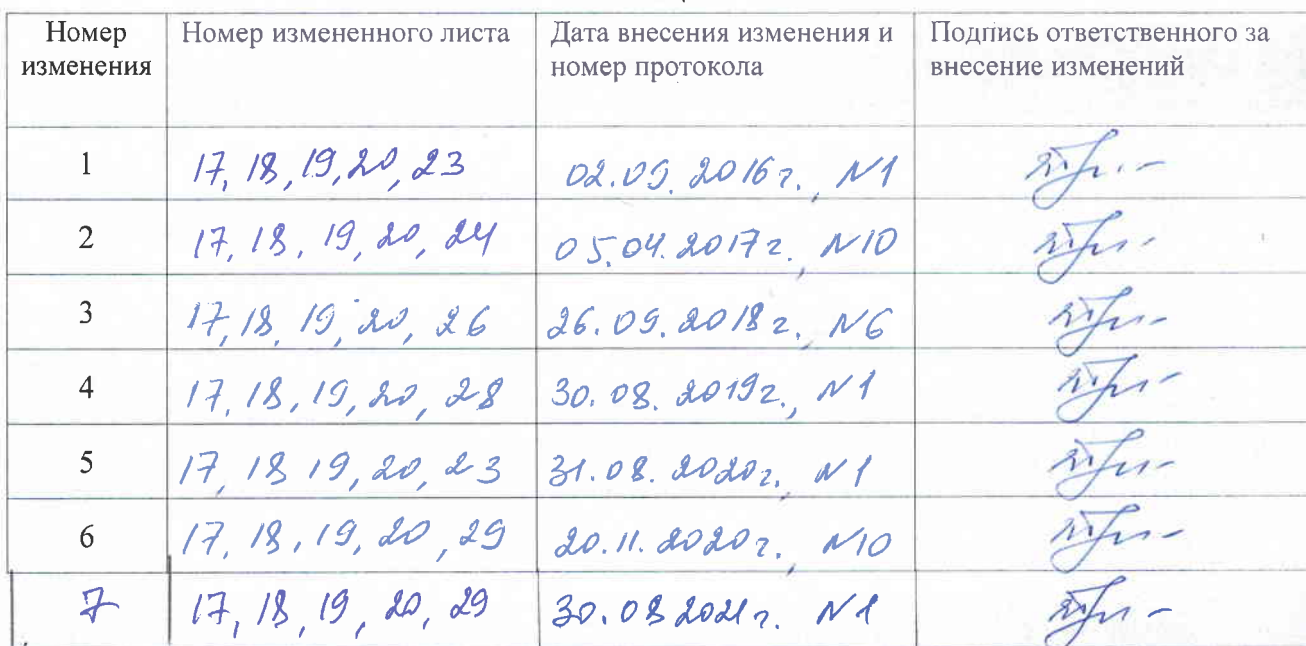 Номер изменения Номер измененного листа Дата внесения изменения и номер протокола Подпись ответственного за внесение изменений
1 17, 18, 19, 20, 23 02.09.2016г., N1
2 17, 18, 19, 20, 24 05.04.2017г., N10
3 17, 18, 19, 20, 26 26.09.2018г., N6
4 17, 18, 19, 20, 28 30.08.2019г., N1
5 17, 18 19, 20, 23 31.08.2020г., N1
6 17, 18, 19, 20, 29 20.11.2020г., N10
7 17, 18, 19, 20, 29 30.08 2021г. N1